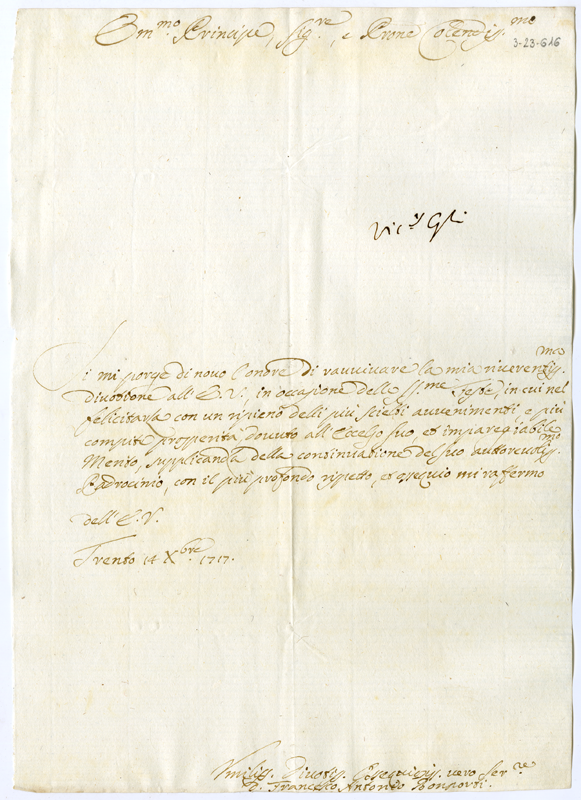 Em.mo Principe, Sig.re, e Prone Colendis.mo
3-23-616
Si mi porge di novo l'onore di ravvivare la mia riverentiss.ma
divotione all'E.V., in occasione delle SS.me Feste, in cui nel
felicitarla con un ripieno delli più scielti avvenimenti, e più
compite prosperità dovuto all'Eccelso suo, et impareggiabile
Merito, supplicandola della continuatione del suo autorevoliss.mo
Padrocinio, con il più profondo rispetto, et ossequio mi raffermo
dell'E.V.
Trento 14 Xbre. 1717.
Umiliss. Divotiss. Ossequiosis. vero Ser.re
D. Francesco Antonio Bonporti.